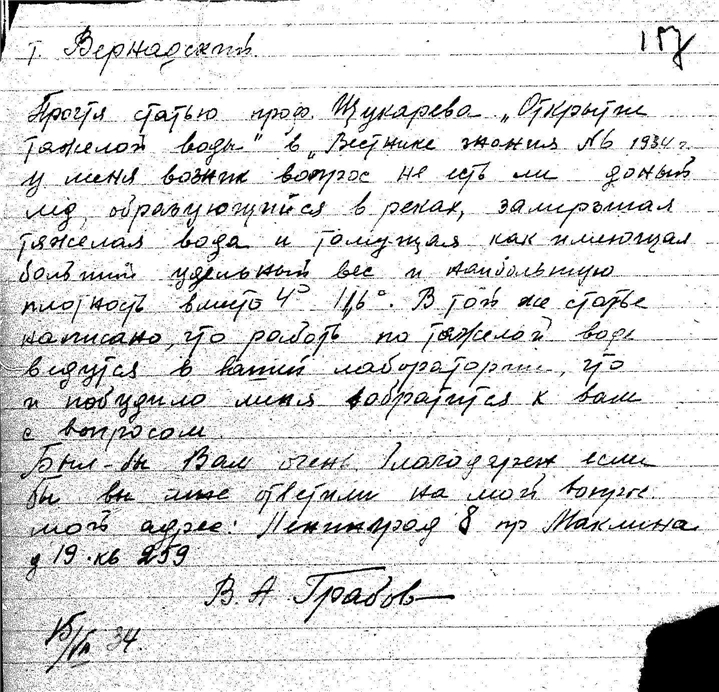 т. Вернадский.
157
Прочтя статью проф. Щукарева „Открытие
тяжелой воды" в „Вестнике знания №6 1934 г.
у меня возник вопрос не есть ли доный
лед, образующийся в реках, замерзшая
тяжелая вода и тонущая как имеющая
больший удельный вес и наибольшую
плотность вместо 4° 11,6°. В той же статье
написано, что работы по тяжелой воде
ведутся в вашей лаборатории, что
и побудило меня обратится к вам
с вопросом.
Был-бы Вам очень благодарен если
бы вы мне ответили на мой вопрос.
мой адрес: Ленинград 8 пр Маклина
д 19 кв 259
В. А. Грабов
34.